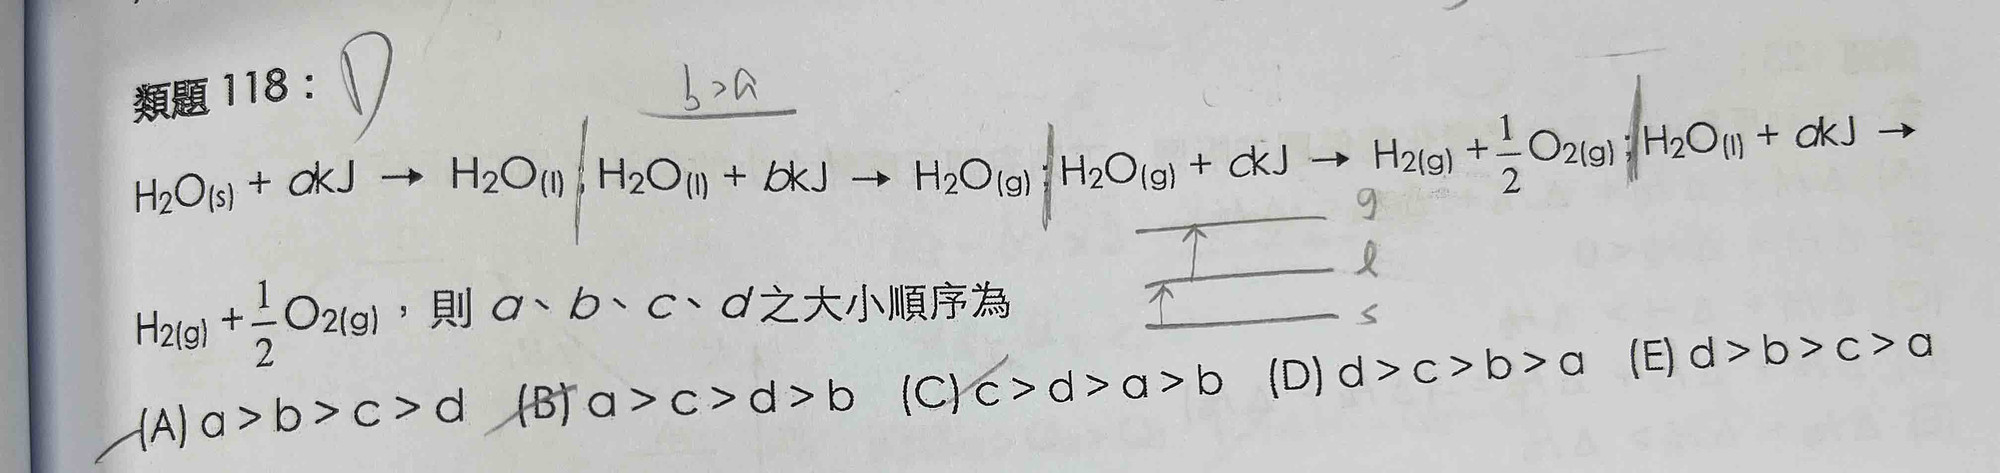 類題 118：D
b>a
H₂O(s) + akJ → H₂O(l)；H₂O(l) + bkJ → H₂O(g)；H₂O(g) + ckJ → H₂(g) + 1/2 O₂(g)；H₂O(l) + dkJ →
g
l
s
H₂(g) + 1/2 O₂(g)，則 a、b、c、d之大小順序為
(A) a > b > c > d (B) a > c > d > b (C) c > d > a > b (D) d > c > b > a (E) d > b > c > a